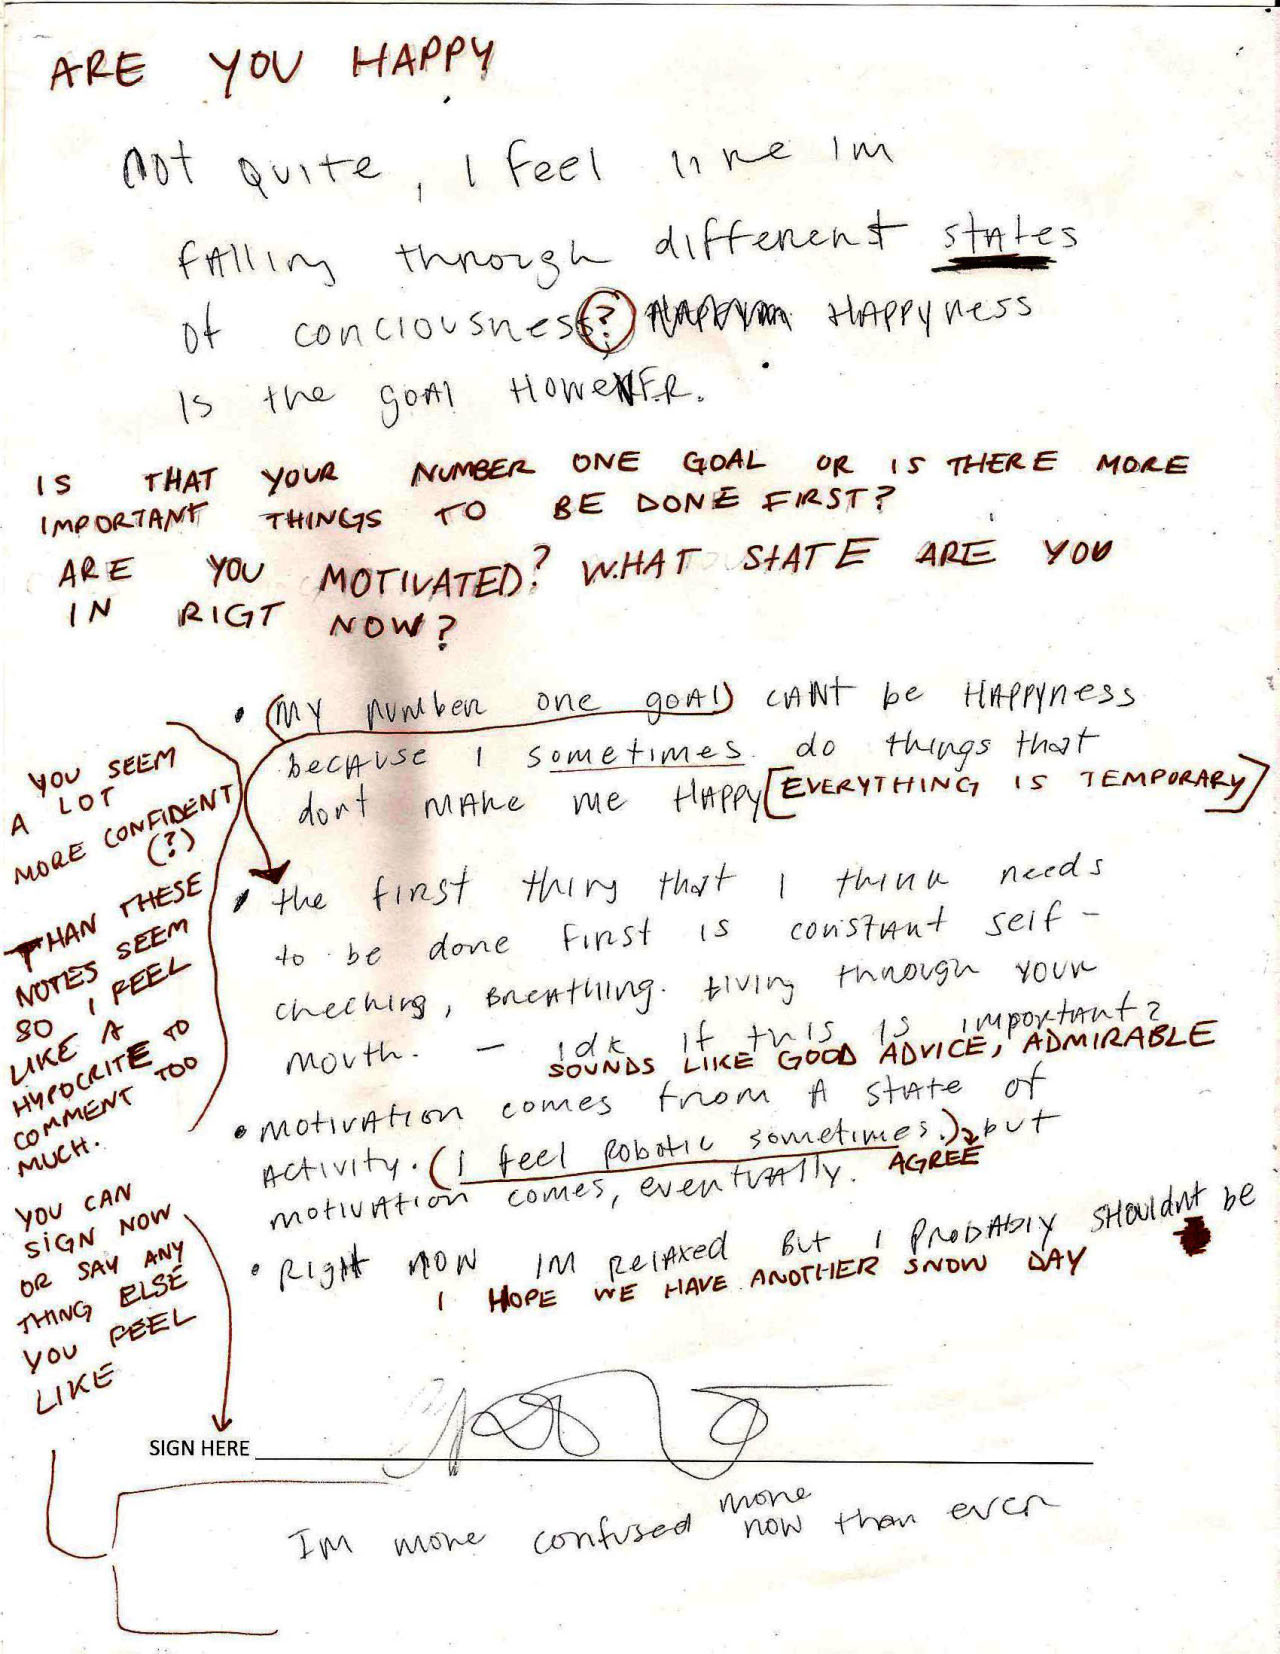 ARE YOU HAPPY
not quite, I feel like Im
falling through different states
of conciousness? Happyness
is the goal However.
IS THAT YOUR NUMBER ONE GOAL OR IS THERE MORE
IMPORTANT THINGS TO BE DONE FIRST?
ARE YOU MOTIVATED? WHAT STATE ARE YOU
IN RIGT NOW?
• (My number one goal) cant be Happyness
because I sometimes do things that
dont make me Happy [EVERYTHING IS TEMPORARY]
• the first thing that I think needs
to be done first is constant self-
checking, Breathing. Living through your
mouth. — idk if this is important?
SOUNDS LIKE GOOD ADVICE, ADMIRABLE
• motivation comes from a state of
activity. (I feel Robotic sometimes.) but
AGREE
motivation comes, eventually.
• Right now im relaxed But I probably shouldnt be
I HOPE WE HAVE ANOTHER SNOW DAY
YOU SEEM
A LOT
MORE CONFIDENT
(?)
THAN THESE
NOTES SEEM
SO I FEEL
LIKE A
HYPOCRITE TO
COMMENT TOO
MUCH.
YOU CAN
SIGN NOW
OR SAY ANY
THING ELSE
YOU FEEL
LIKE
SIGN HERE
more
Im more confused now than ever